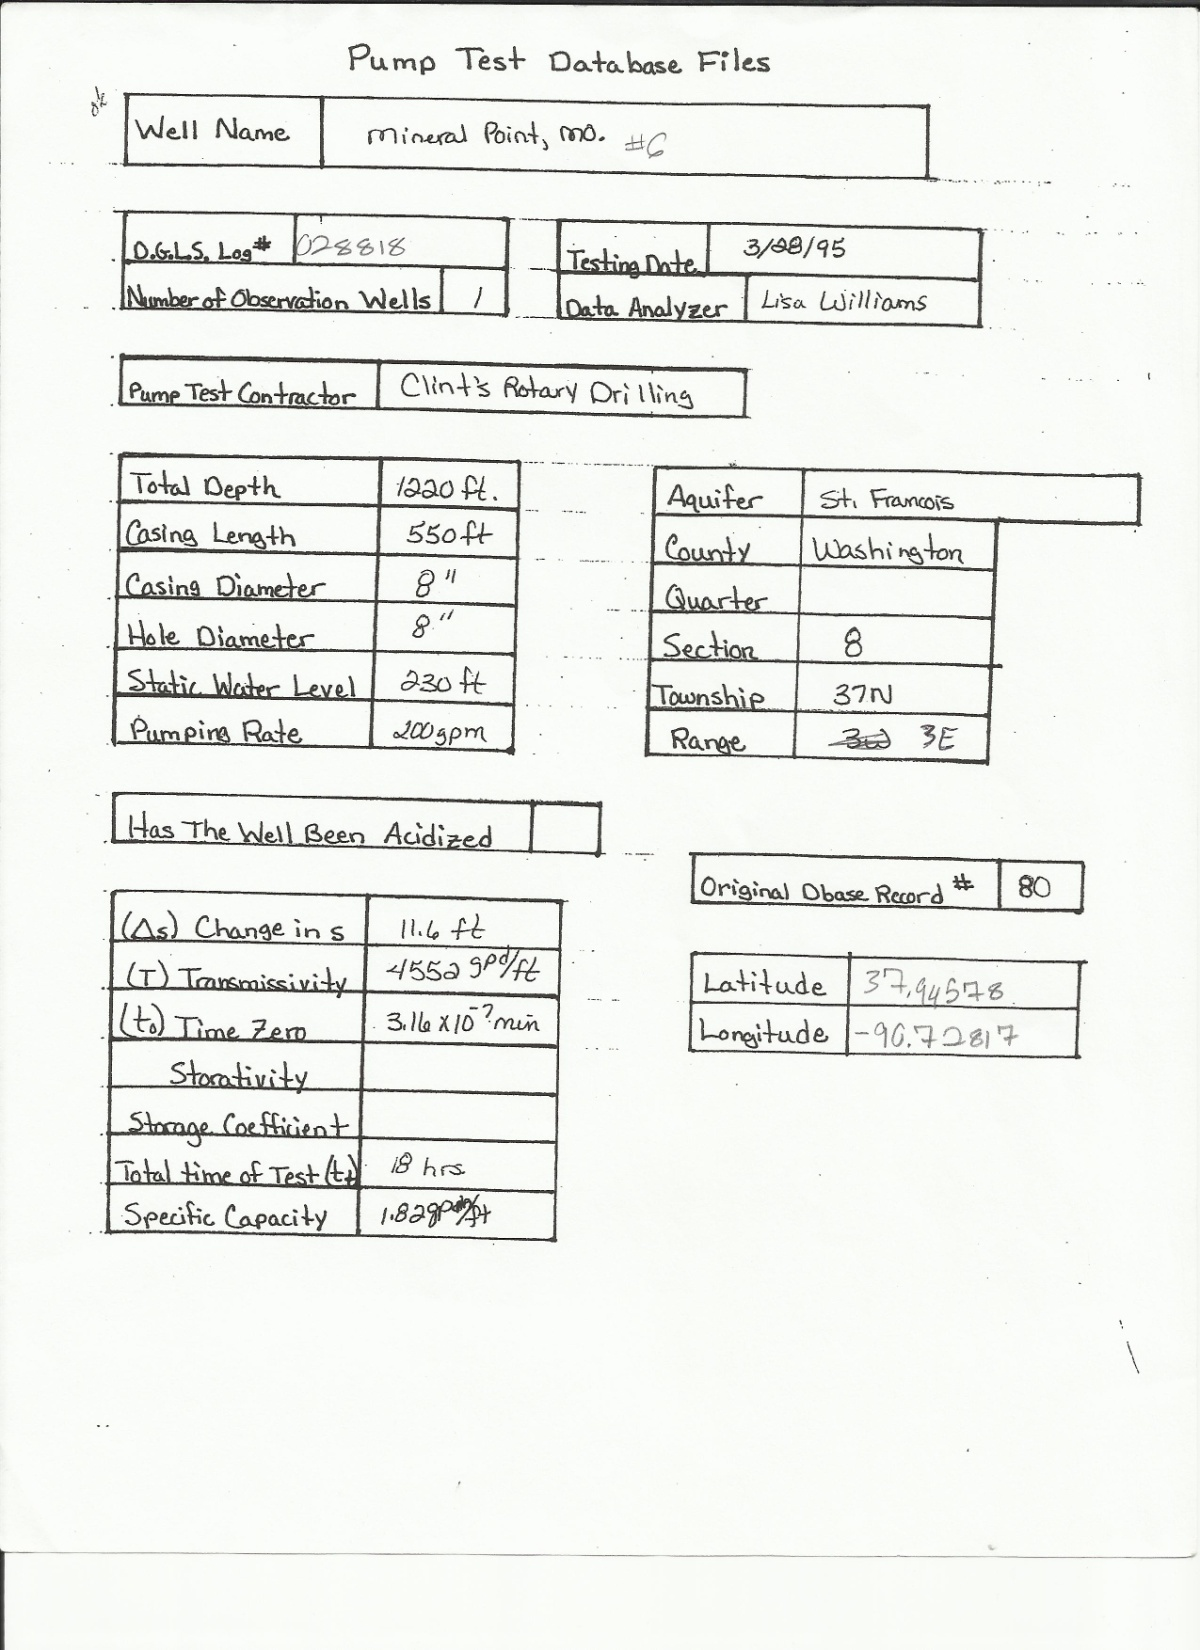 Pump Test Database Files
ok
Well Name Mineral Point, Mo. #6
D.G.L.S. Log# 028818
Number of Observation Wells 1
Testing Date 3/28/95
Data Analyzer Lisa Williams
Pump Test Contractor Clint's Rotary Drilling
Total Depth 1220 ft.
Casing Length 550 ft
Casing Diameter 8"
Hole Diameter 8"
Static Water Level 230 ft
Pumping Rate 200 gpm
Aquifer St. Francois
County Washington
Quarter
Section 8
Township 37N
Range 3W 3E
Has The Well Been Acidized
Original Dbase Record # 80
(Δs) Change in s 11.6 ft
(T) Transmissivity 4552 gpd/ft
(t₀) Time Zero 3.16 x 10⁻⁷ min
Storativity
Storage Coefficient
Total time of Test (tₜ) 18 hrs
Specific Capacity 1.82 /ft
Latitude 37.94578
Longitude -90.72817